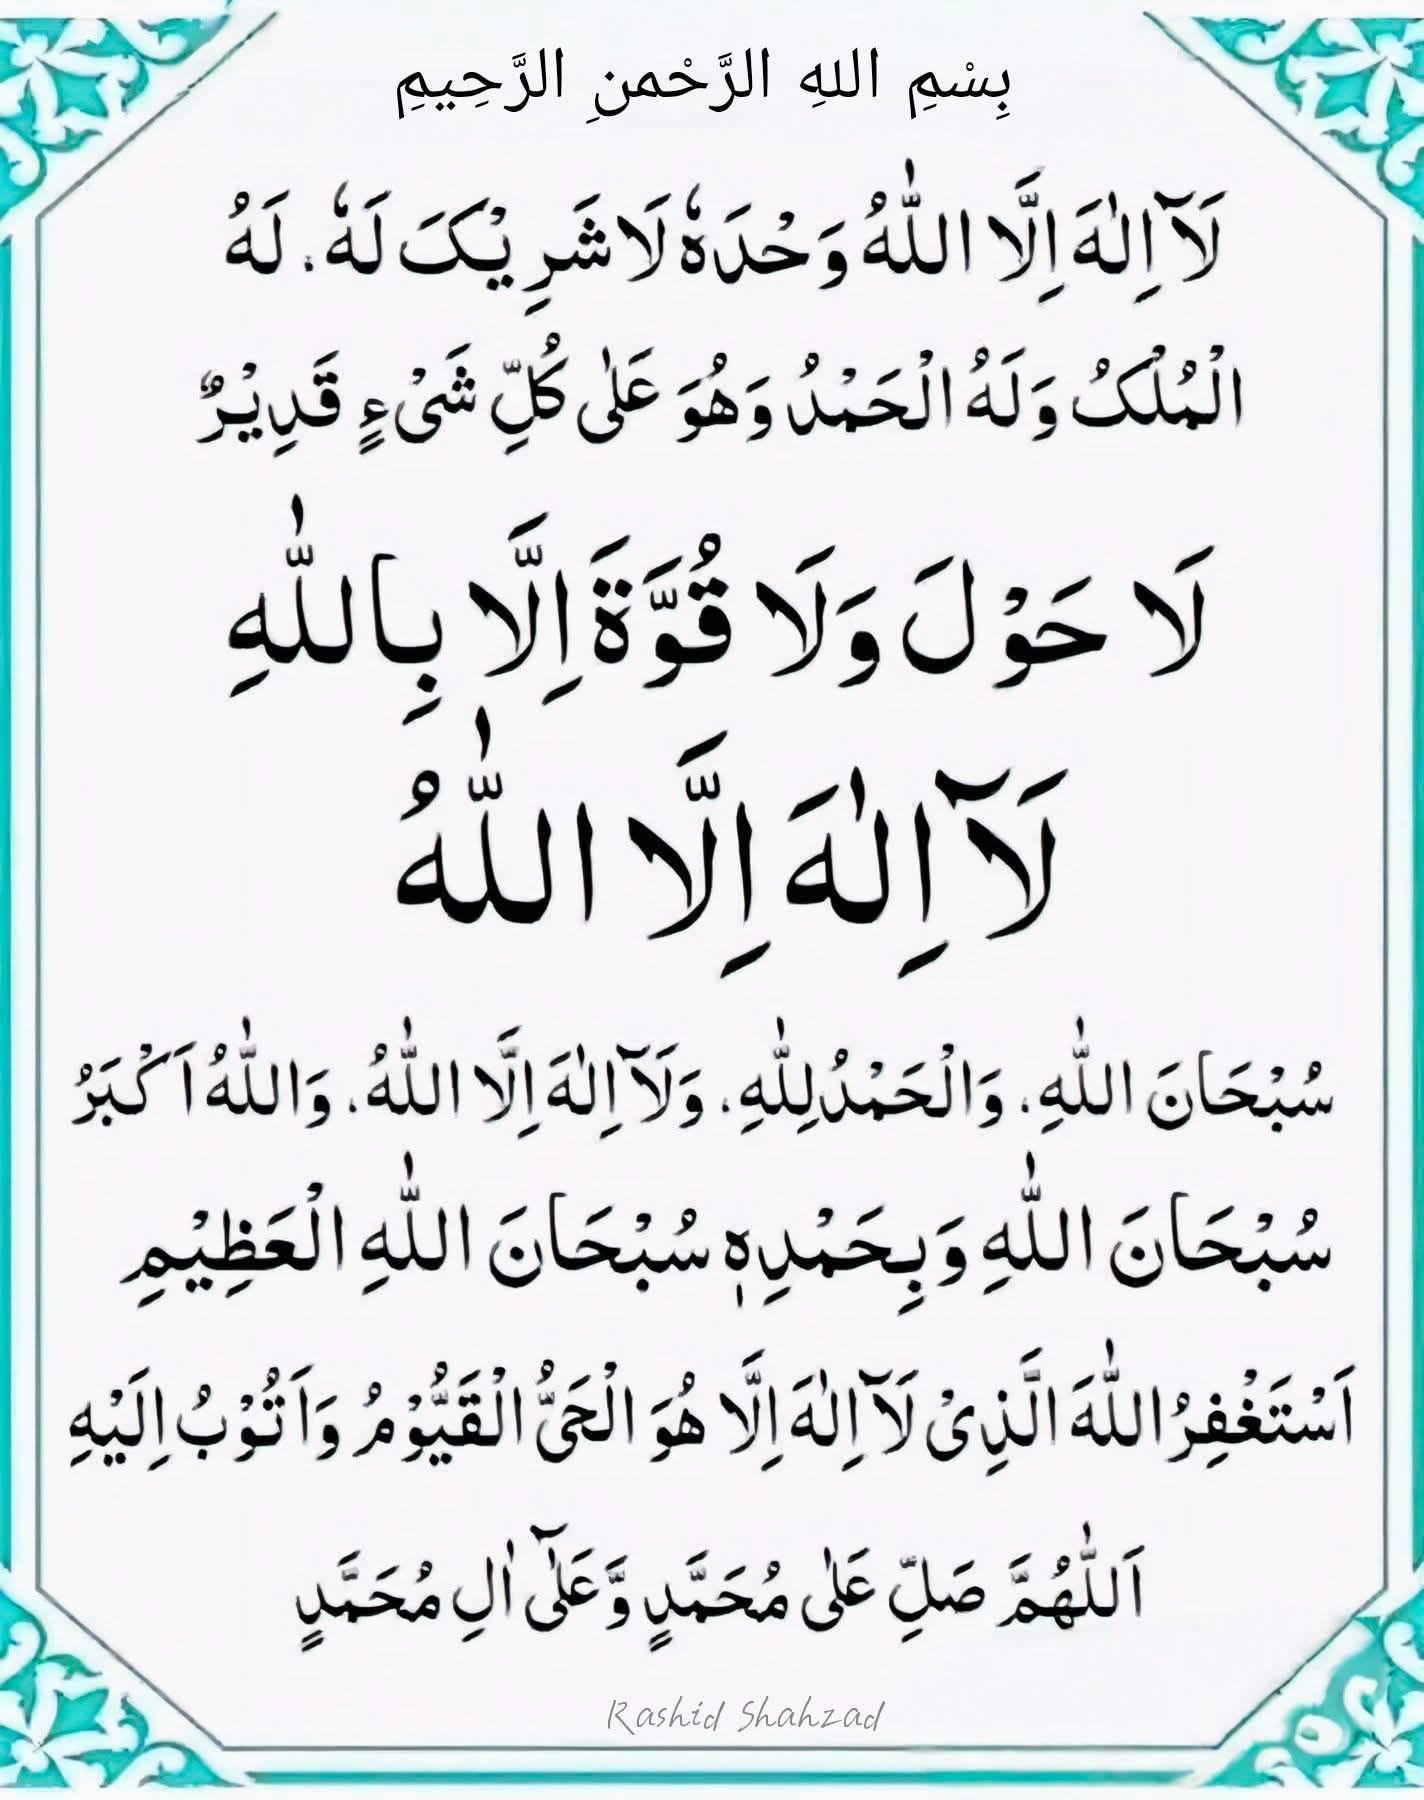 بِسْمِ اللهِ الرَّحْمنِ الرَّحِيمِ
لَآ اِلٰهَ اِلَّا اللّٰهُ وَحْدَهٗ لَا شَرِيْكَ لَهٗ. لَهُ
الْمُلْكُ وَلَهُ الْحَمْدُ وَهُوَ عَلٰى كُلِّ شَىْءٍ قَدِيْرٌ
لَا حَوْلَ وَلَا قُوَّةَ اِلَّا بِاللّٰهِ
لَآ اِلٰهَ اِلَّا اللّٰهُ
سُبْحَانَ اللّٰهِ. وَالْحَمْدُلِلّٰهِ. وَلَآ اِلٰهَ اِلَّا اللّٰهُ. وَاللّٰهُ اَكْبَرُ
سُبْحَانَ اللّٰهِ وَبِحَمْدِهٖ سُبْحَانَ اللّٰهِ الْعَظِيْمِ
اَسْتَغْفِرُ اللّٰهَ الَّذِىْ لَآ اِلٰهَ اِلَّا هُوَ الْحَىُّ الْقَيُّوْمُ وَاَتُوْبُ اِلَيْهِ
اَللّٰهُمَّ صَلِّ عَلٰى مُحَمَّدٍ وَّعَلٰٓى اٰلِ مُحَمَّدٍ
Rashid Shahzad